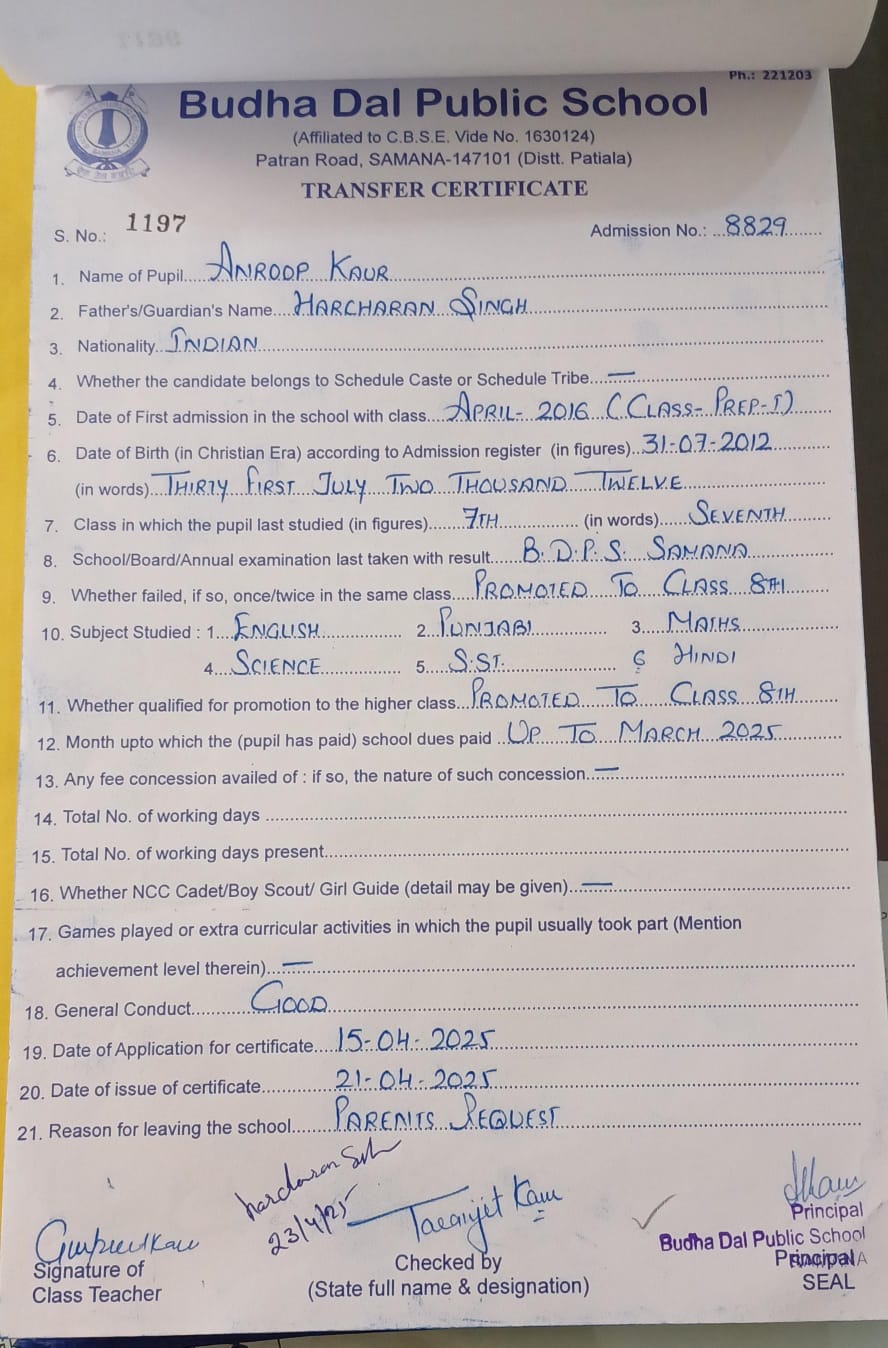 Ph.: 221203
Budha Dal Public School
(Affiliated to C.B.S.E. Vide No. 1630124)
Patran Road, SAMANA-147101 (Distt. Patiala)
TRANSFER CERTIFICATE
S. No.: 1197 Admission No.: 8829
1. Name of Pupil ANROOP KAUR
2. Father's/Guardian's Name HARCHARAN SINGH
3. Nationality INDIAN
4. Whether the candidate belongs to Schedule Caste or Schedule Tribe —
5. Date of First admission in the school with class APRIL- 2016 (CLASS- PREP-I)
6. Date of Birth (in Christian Era) according to Admission register (in figures) 31-07-2012
(in words) THIRTY FIRST JULY TWO THOUSAND TWELVE
7. Class in which the pupil last studied (in figures) 7TH (in words) SEVENTH
8. School/Board/Annual examination last taken with result B.D.P.S. SAMANA
9. Whether failed, if so, once/twice in the same class PROMOTED TO CLASS 8TH
10. Subject Studied : 1. ENGLISH 2. PUNJABI 3. MATHS
4. SCIENCE 5. S.ST. 6 HINDI
11. Whether qualified for promotion to the higher class PROMOTED TO CLASS 8TH
12. Month upto which the (pupil has paid) school dues paid UP TO MARCH 2025
13. Any fee concession availed of : if so, the nature of such concession —
14. Total No. of working days
15. Total No. of working days present
16. Whether NCC Cadet/Boy Scout/ Girl Guide (detail may be given) —
17. Games played or extra curricular activities in which the pupil usually took part (Mention
achievement level therein) —
18. General Conduct GOOD
19. Date of Application for certificate 15-04-2025
20. Date of issue of certificate 21-04-2025
21. Reason for leaving the school PARENTS REQUEST
23/4/25
Taranjit Kaur
Gurpreet Kaur
Signature of
Class Teacher
Checked by
(State full name & designation)
Principal
Budha Dal Public School
Principal
SEAL